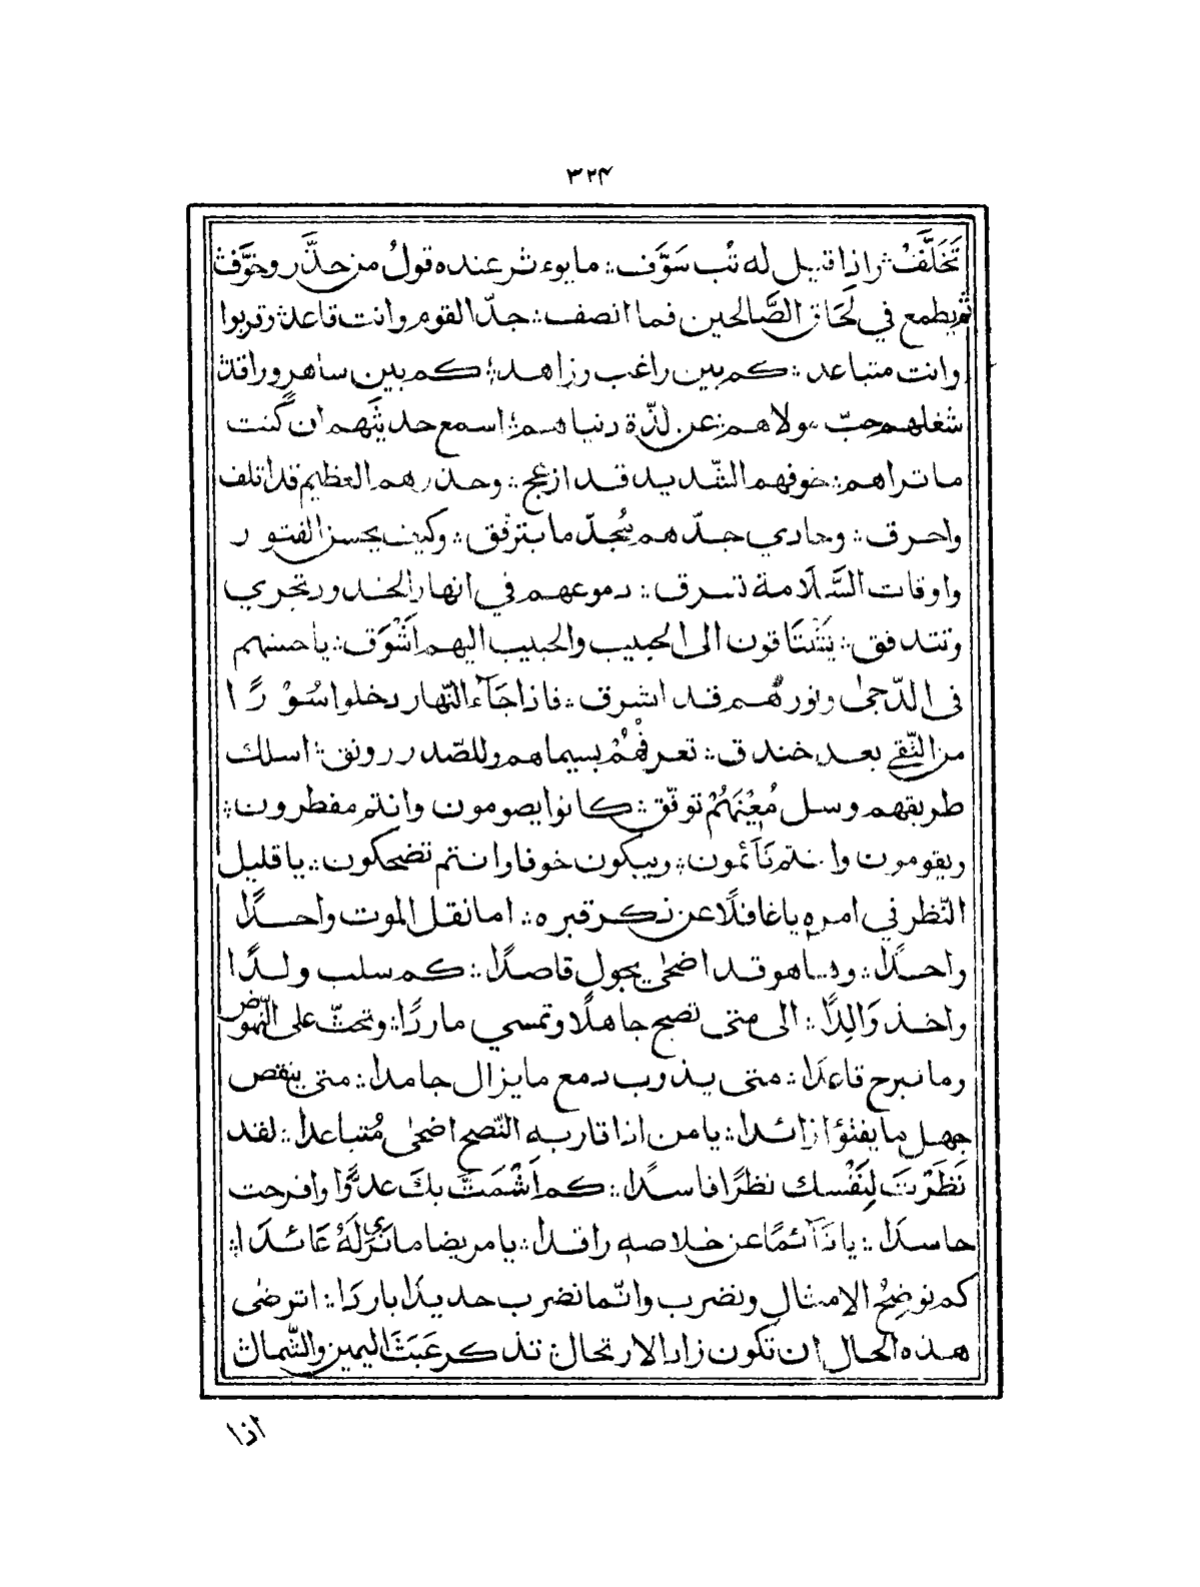 ٣٢٤
تَخَلَّفُ ؞ واذا قيل له تُب سَوَّف ؞ ما يوءثر عنده قولُ من حذَّر وخوَّف ؞
ثم يطمع في لَحَاق الصَّالحين فما انصف ؞ جدّ القوم وانت قاعد ؞ وقربوا
وانت متباعد ؞ كم بين راغب وزاهد ؞ كم بين ساهر وراقد ؞
شغلهم حبّ مولاهم ؞ عن لذّة دنياهم ؞ اسمع حديثهم ان كنت
ما تراهم ؞ خوفهم الشّديد قد ازعج ؞ وحذرهم العظيم قد اتلف
واحرق ؞ وحادي جدّهم مُجدّ ما يترفّق ؞ وكيف يحسن الفتور
واوقات السَّلَامة تسرق ؞ دموعهم في انهار الخدود تجري
وتتدفق ؞ يَشْتَاقون الى الحبيب والحبيب اليهم اَشْوَق ؞ يا حسنهم
فى الدّجىٰ ونورهُم قد اشرق ؞ فاذا جَآء النّهار دخلوا سُوْرًا
من التّقى بعد خندق ؞ تعرفهُمْ بسيماهم وللصّدر رونق ؞ اسلك
طريقهم وسل مُعِيْنَهُمْ توفّق ؞ كانوا يصومون وانتم مفطرون ؞
ويقومون وانتم نَآئمون ؞ ويبكون خوفا وانتم تضحكون ؞ يا قليل
النّظر في امره يا غافلًا عن ذكر قبره ؞ اما نقل الموت واحدًا
واحدًا ؞ وها هو قد اضحىٰ يجول قاصدًا ؞ كم سلب ولدًا
واخذ وَالِدًا ؞ الى متى تصبح جاهلًا وتمسي ماردًا ؞ وتحثّ على النّهوض
وما تبرح قاعدًا ؞ متى يذوب دمع ما يزال جامدا ؞ متى ينقص
جهل ما يفتؤا زائدا ؞ يا من اذا قاربه النّصح اضحىٰ مُتباعدا ؞ لقد
نَظَرْتَ لِنَفْسك نظرًا فاسدًا ؞ كم اَشْمَتَّ بكَ عدوًّا وافرحت
حاسدًا ؞ يا نَآئمًا عن خلاصه راقدا ؞ يا مريضا ما نَرٰى لَهُ عَائدًا ؞
كم نوضِحُ الامثال ونضرب وانّما نضرب حديدًا باردًا ؞ اترضى
هذه الحال ان تكون زاد الارتحال ؞ تذكر عَبَثَ اليمين والشّمال ؞
اذا